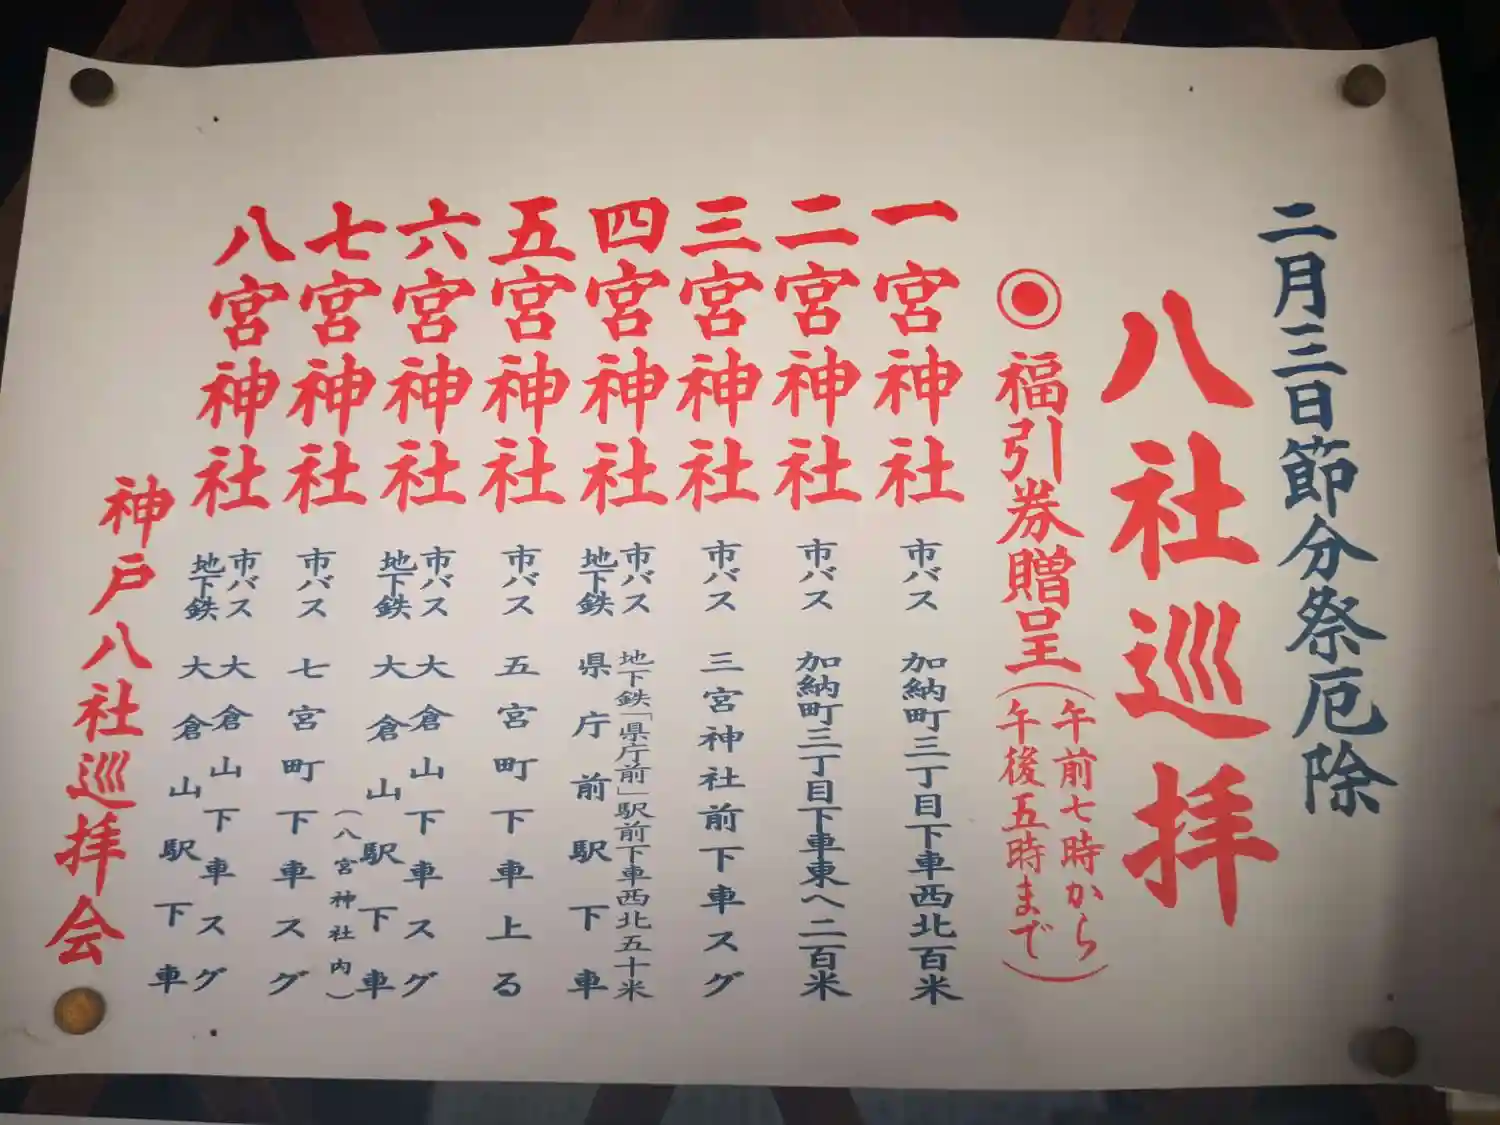 二月三日節分祭厄除
八社巡拝
◉福引券贈呈(午前七時から
午後五時まで)
一宮神社 市バス 加納町三丁目下車西北百米
二宮神社 市バス 加納町三丁目下車東へ二百米
三宮神社 市バス 三宮神社前下車スグ
四宮神社 市バス 地下鉄「県庁前」駅前下車西北五十米
地下鉄 県庁前駅下車
五宮神社 市バス 五宮町下車上る
六宮神社 市バス 大倉山下車スグ
地下鉄 大倉山駅下車
(八宮神社内)
七宮神社 市バス 七宮町下車スグ
八宮神社 市バス 大倉山下車スグ
地下鉄 大倉山駅下車
神戸八社巡拝会